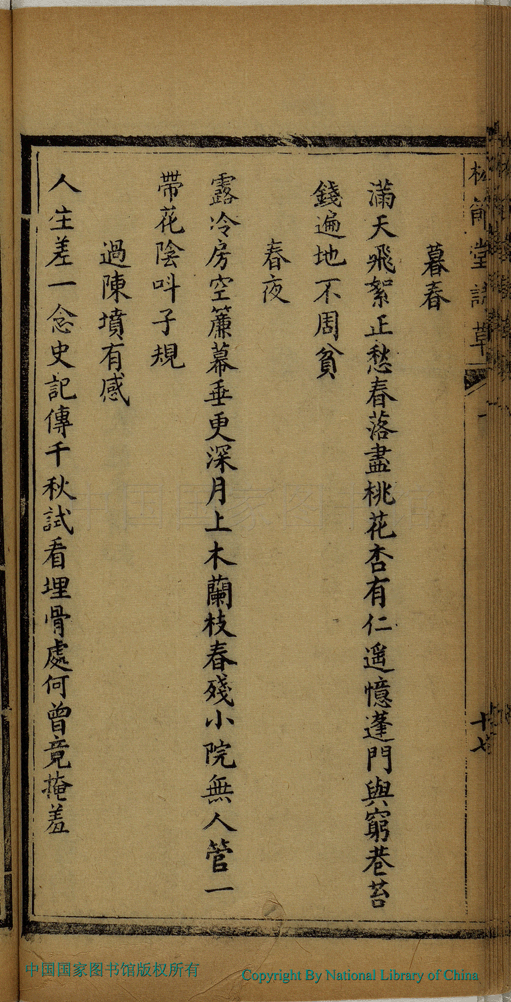 暮春
滿天飛絮正愁春落盡桃花杏有仁遥憶蓬門與窮巷苔
錢遍地不周貧
春夜
露冷房空簾幕垂更深月上木蘭枝春殘小院無人管一
帶花陰呌子規
過陳墳有感
人生差一念史記傳千秋試看埋骨處何曾竟掩羞
堂詩草
十七
中国国家图书馆版权所有
Copyright By National Library of China